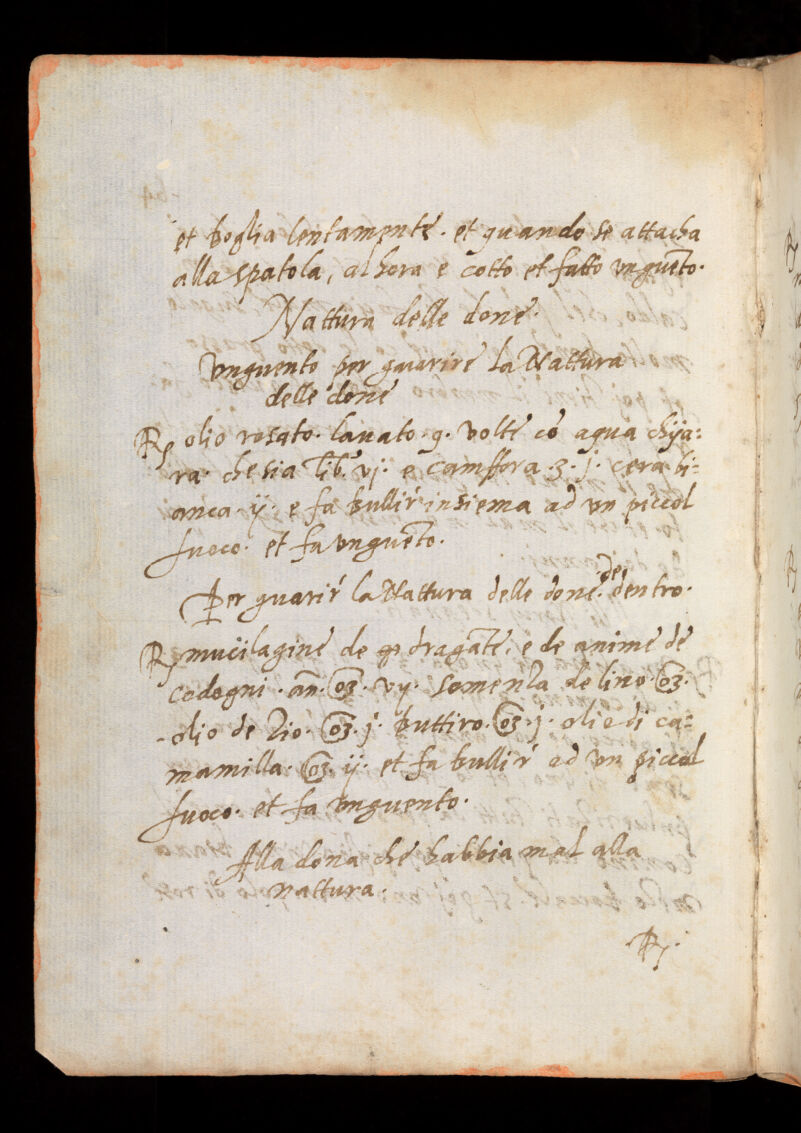 et boglia lentamente. et quando se attacha
alla spatola, alhora e cotto et fatto vnguẽto.
Nattura delle done.
Vnguento per guarire la Nattura
delle done
℞ olio rosato. lauato. 9. volte cõ aqua chya:
ra. che sia lib. vj. e camffora. ʒ. j. cera bi:
anca. ij. e fa bullir insiema ad vn piccol
fuoco. et fa vnguẽto.
Per guarir la Nattura delle done. de dentro.
℞ mucilagine de dragãte. e de anime de
codogni. añ. oʒ. vij. somenza de lino. oʒ.
olio de Zio. oʒ. j. buttiro. oʒ. j. olio di ca:
mamilla. oʒ. ij. et fa bullir ad vn piccol
fuoco. et fa vnguento.
Alla dona che habbia mal alla
nattura.
℞.